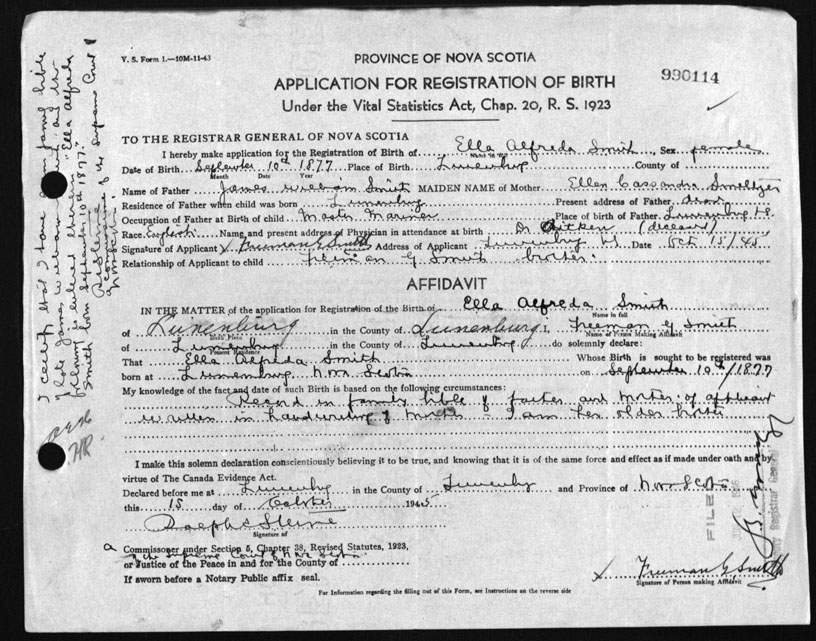 V. S. Form 1.—10M-11-43
PROVINCE OF NOVA SCOTIA
990114
APPLICATION FOR REGISTRATION OF BIRTH
Under the Vital Statistics Act, Chap. 20, R. S. 1923
TO THE REGISTRAR GENERAL OF NOVA SCOTIA
I hereby make application for the Registration of Birth of Ella Alfreda Smith, Sex female
Name in full
Date of Birth September 10th 1877 Place of Birth Lunenburg County of
Month Date Year
Name of Father James William Smith MAIDEN NAME of Mother Ellen Cassandra Smeltzer
Residence of Father when child was born Lunenburg Present address of Father dead
Occupation of Father at Birth of child Master Mariner Place of birth of Father Lunenburg
Race English Name and present address of Physician in attendance at birth Dr Aitken (deceased)
Signature of Applicant x Freeman G Smith Address of Applicant Lunenburg NS Date Oct 15/45
Relationship of Applicant to child Freeman G Smith brother
AFFIDAVIT
IN THE MATTER of the application for Registration of the Birth of Ella Alfreda Smith
Name in full
of Lunenburg in the County of Lunenburg I, Freeman G Smith
Birth Place Name of Person Making Affidavit
of Lunenburg in the County of Lunenburg do solemnly declare:
Present Residence
That Ella Alfreda Smith Whose Birth is sought to be registered was
born at Lunenburg, Nova Scotia on September 10th/1877
My knowledge of the fact and date of such Birth is based on the following circumstances:
Record in family bible of father and mother of applicant
written in handwriting of mother - I am her older brother
I make this solemn declaration conscientiously believing it to be true, and knowing that it is of the same force and effect as if made under oath and by
virtue of The Canada Evidence Act.
Declared before me at Lunenburg in the County of Lunenburg and Province of Nova Scotia
this 15 day of October 1945
Signature of
a Commissioner under Section 5, Chapter 38, Revised Statutes, 1923,
of the Supreme Court of Nova Scotia
or Justice of the Peace in and for the County of
If sworn before a Notary Public affix seal.
x Freeman G Smith
Signature of Person making Affidavit
For Information regarding the filling out of this Form, see Instructions on the reverse side
I certify that I have seen family bible
of late James William Smith and the
following is entered therein "Ella Alfreda
Smith born September 10th 1877."
a commissioner of the Supreme Court of
Nova Scotia
FILED
Deputy Registrar General